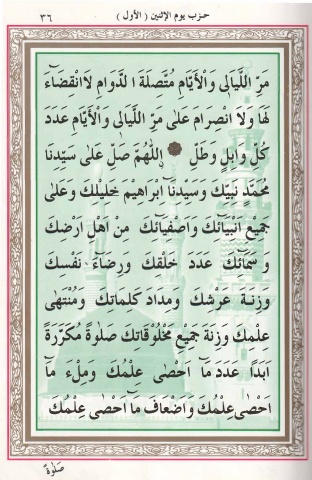 حزب يوم الإثنين ( الأول )
٣٦
مَرِّ اللَّيَالِى وَالْأَيَّامِ مُتَّصِلَةَ الدَّوَامِ لَا انْقِضَآءَ
لَهَا وَلَا انْصِرَامَ عَلَى مَرِّ اللَّيَالِى وَالْأَيَّامِ عَدَدَ
كُلِّ وَابِلٍ وَطَلٍّ اَللّٰهُمَّ صَلِّ عَلَى سَيِّدِنَا
مُحَمَّدٍ نَبِيِّكَ وَسَيِّدِنَا اِبْرَاهِيمَ خَلِيلِكَ وَعَلَى
جَمِيعِ اَنْبِيَآئِكَ وَاَصْفِيَآئِكَ مِنْ اَهْلِ اَرْضِكَ
وَسَمَآئِكَ عَدَدَ خَلْقِكَ وَرِضَآءَ نَفْسِكَ
وَزِنَةَ عَرْشِكَ وَمِدَادَ كَلِمَاتِكَ وَمُنْتَهٰى
عِلْمِكَ وَزِنَةَ جَمِيعِ مَخْلُوقَاتِكَ صَلٰوةً مُكَرَّرَةً
اَبَدًا عَدَدَ مَآ اَحْصٰى عِلْمُكَ وَمِلْءَ مَآ
اَحْصٰى عِلْمُكَ وَاَضْعَافَ مَآ اَحْصٰى عِلْمُكَ
صَلٰوةً